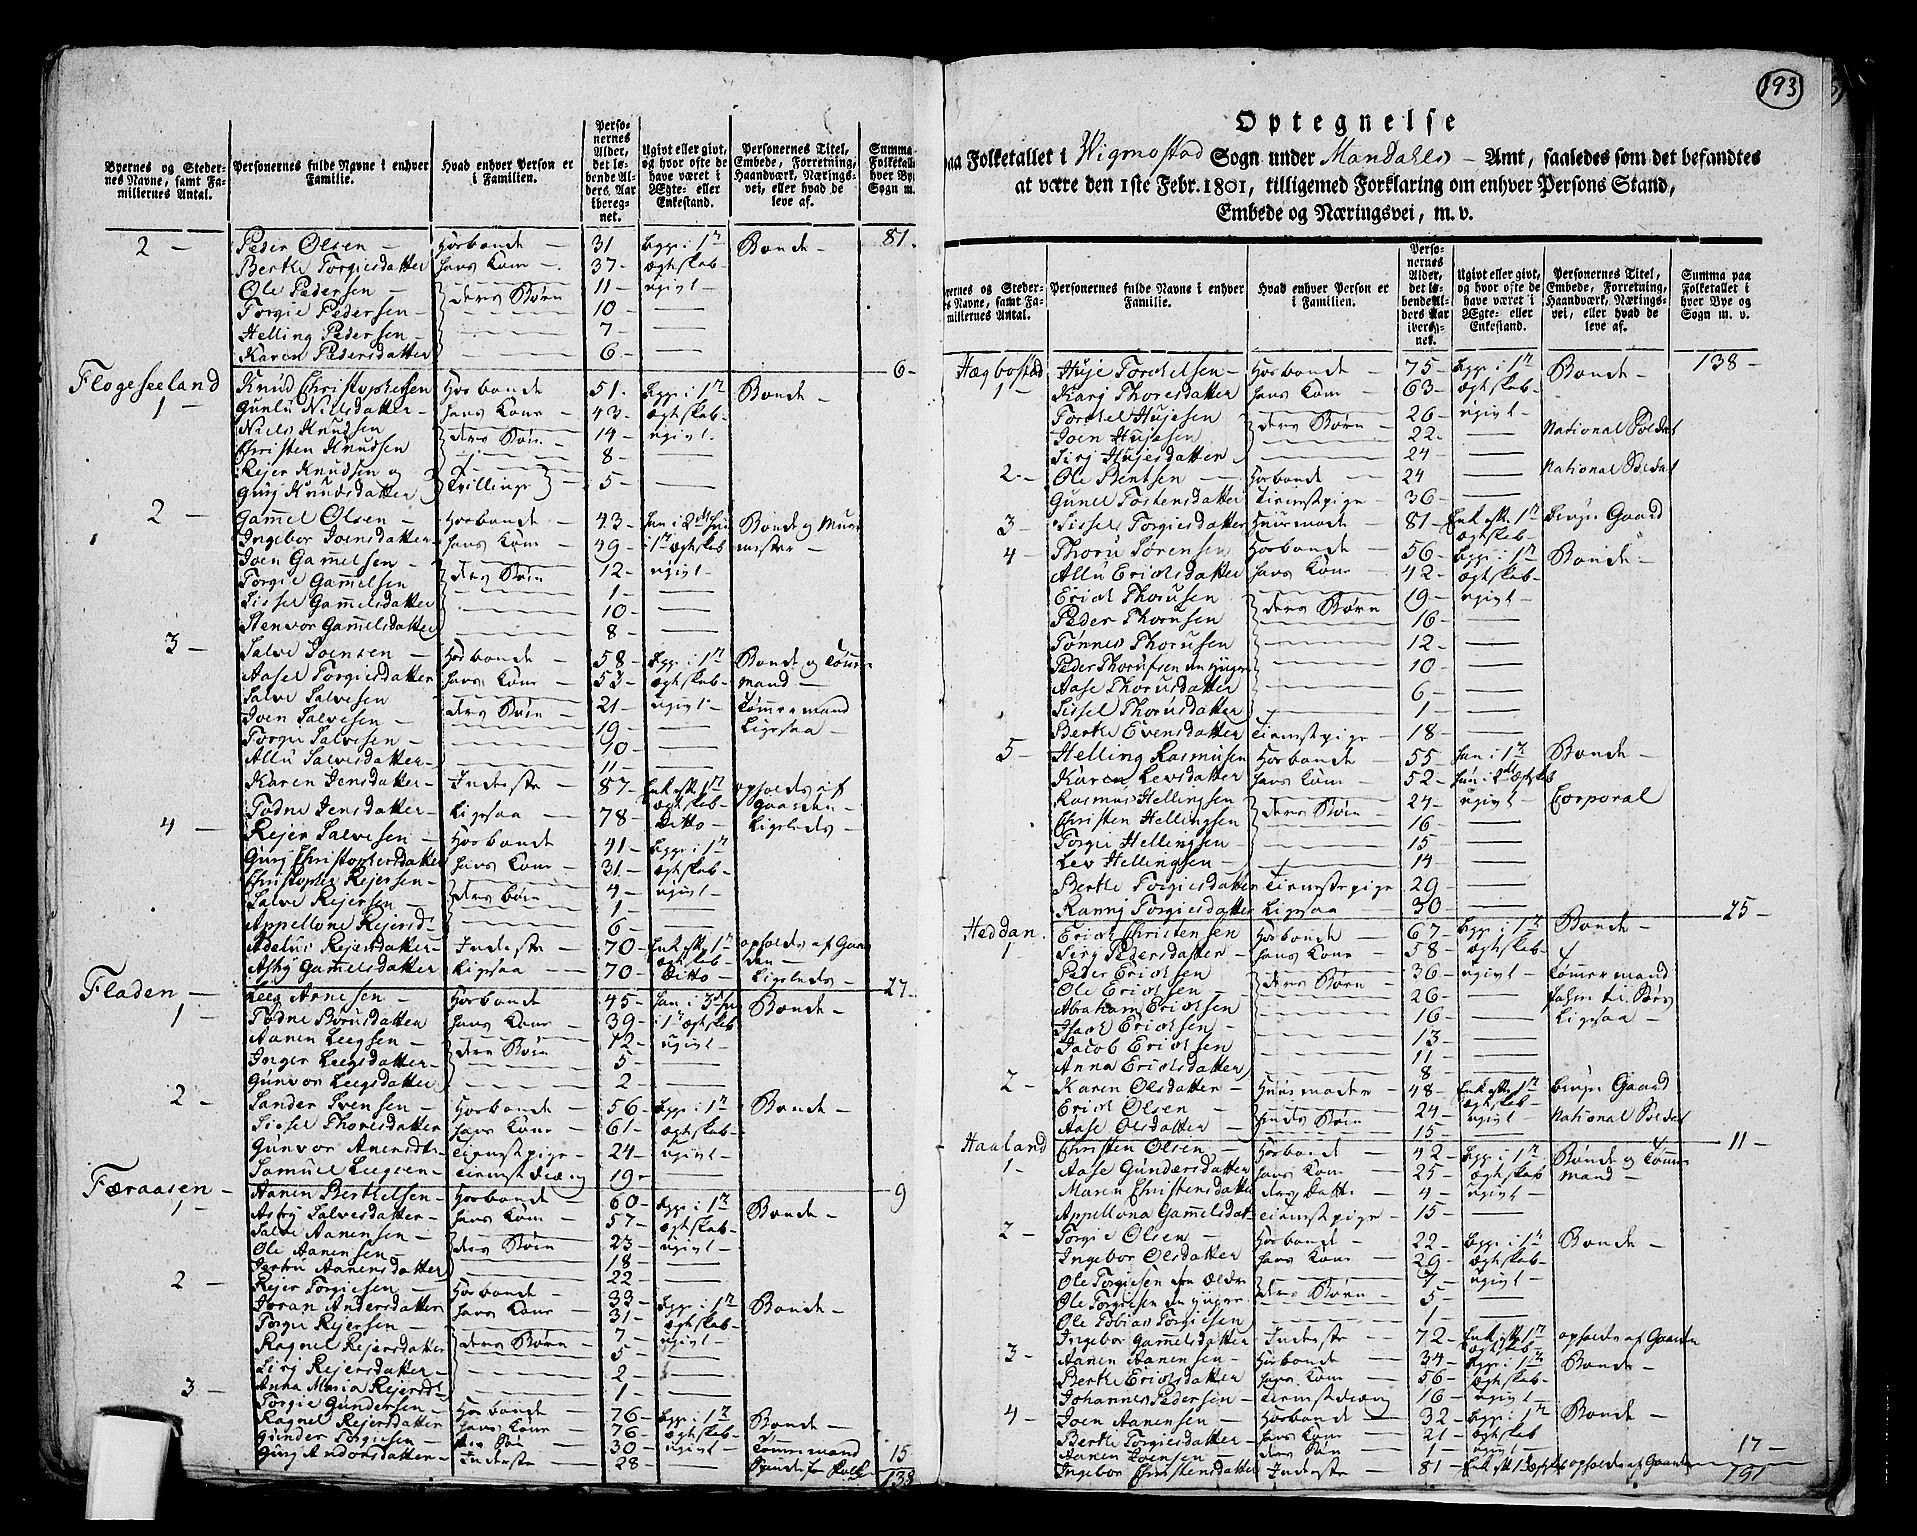 Byernes og Steder-
nes Navne, samt Fa-
milliernes Antal.
Personernes fulde Navne i enhver
Familie.
Hvad enhver Person er
i Familien.
Perso-
nernes
Alder,
det lø-
bende Al-
ders Aar
iberegnet.
Ugivt eller givt,
og hvor ofte de
have været i
Ægte- eller
Enkestand.
Personernes Titel,
Embede, Forretning,
Haandværk, Nærings-
vei, eller hvad de
leve af.
81.
2 — Peder Olsen — Hosbonde — 31 Begge i 1te Bonde —
Berthe Torgiesdatter hans Kone —. 37 — Ægteskab —
Ole Pedersen — deres Børn 11 — ugivt —
Torgie Pedersen — 10 —
Helling Pedersen — 7 —
Karen Pedersdatter 6 — 6 —
Flogeseeland
1 — Knud Christophersen Hosbonde 51. Begge i 1te Bonde —
Gunlu Nielsdatter — hans Kone — 43 — Ægteskab
Niels Knudsen deres Børn 14 — ugivt
Christen Knudsen 8 —
Rejer Knudsen og Tvillinge 5 —
Gurj Knudsdatter
2 — Gamel Olsen — Hosbonde — 43 — Bonde og Muur
Ingebor Joensdatter — hans Kone — 49 — i 1te Ægteskab mester —
Joen Gamelsen — deres Børn 12 — ugivt —
Torgie Gamelsen 1 —
Sissel Gamelsdatter 10 —
Stenvor Gamelsdatter 8 —
3 — Salve Joensen — Hosbonde — 58 — Begge i 1te Bonde og Tømer
Aasel Torgiesdatter hans Kone — 53 — Ægteskab — mand —
Salve Salvesen deres Børn 21 — ugivt — Tømermand
Joen Salvesen — 19 — Ligesaa
Torgie Salvesen — 10 —
Allu Salvesdatter — 11 —
Karen Jensdatter — Inderste — 87 — Enke eft. 1te opholdes af
Ægteskab — Gaarden —
Todne Jensdatter — Ligesaa — 78 — Ditto — Ligeledes —
4 — Rejer Salvesen — Hosbonde 41 — Begge i 1te
Gurj Christophersdatter hans Kone — 31 — Ægteskab —
Christopher Rejersen — deres Børn 4 — ugivt —
Salve Rejersen — 1 —
Appellone Rejersd: 6 —
Adelus Rejersdatter — Inderste — 70 — Enke eft. 1te opholdes af Gaar
Ægteskab den —
Asbj Gamelsdatter Ligesaa 70 — Ditto — Ligeledes — 27 —
Fladen —
1 — Leeg Anesen — Hosbonde — 45 — Bonde —
Todne Borusdatter hans Kone — 39 — i 1te Ægteskab
Aanen Leegsen — deres Børn 12 — ugivt —
Inger Leegsdatter — 5 —
Gunvor Leegsdatter 2 —
2 — Sander Svensen — Hosbonde — 56 — Begge i 1te Bonde —
Sissel Thoresdatter hans Kone — 61 — Ægteskab —
Gunvor Anersdtr tienestpige — 24 — ugivt —
Samuel Leegsen — tienestdreng 19 — 9
Færaasen —
1 — Aanen Berthelsen — Hosbonde — 60 — Begge i 1te Bonde —
Asbj Salvesdatter — hans Kone — 57 — Ægteskab —
Salve Aanensen — deres Børn 23 — ugivt —
Ole Aanensen — 18 —
Aanensdatter 22 —
2 — Rejer Torgiesen — Hosbonde — 33 — Begge i 1te Bonde —
Joran Andersdatter hans Kone — 31 — Ægteskab
Torgie Rejersen — deres Børn 7 — ugivt —
Ragnel Rejersdatter 5 —
Sirj Rejersdatter — 2 —
Anna Maria Rejersdt: 1 —
3 — Torgie Gundersen — Hosbonde — 76 — Begge i 1te Bonde —
Ragnel Rejersdatter hans Kone — 76 — Ægteskab —
Gunder Torgiesen — 30 — ugivt — Tømermand
Gurj Andorsdatter — Inderste — 28 — 15
138
193
Optegnelse
paa Folketallet i Wigmostad Sogn under Mandahls — Amt, saaledes som det befandtes
at være den 1ste Febr. 1801, tilligemed Forklaring om enhver Persons Stand,
Embede og Næringsvei, m. v.
Personernes fulde Navne i enhver
Familie.
Hvad enhver Person er
i Familien.
Perso-
nernes
Alder,
det lø-
bende Al-
ders Aar
iberegnet.
Ugivt eller givt,
og hvor ofte de
have været i
Ægte- eller
Enkestand.
Personernes Titel,
Embede, Forretning,
Haandværk, Nærings-
vei, eller hvad de
leve af.
Summa paa
Folketallet i
hver Bye og
Sogn m. v.
Hægbostad
1 — Huje Torchelsen — Hosbonde — 75 — Begge i 1te Bonde — 138 —
Karj Thoresdatter hans Kone — 63 — Ægteskab —
Torchel Hujesen — deres Børn 26 — ugivt —
Joen Hujesen — 22 — National Soldat
Sirj Hujesdatter — 24 —
2 — Ole Bentsen — Hosbonde — 24 — National Soldat
Gunel Tostensdatter tienestpige — 36 —
3 — Sissel Torgiesdatter Huusmode — 81 — Enke eft. 1te Bruger Gaard
Ægteskab —
4 — Thoru Sørensen Hosbonde — 56 — Begge i 1te Bonde —
Allu Erichsdatter hans Kone — 42 — Ægteskab —
Erich Thorusen deres Børn 19 — ugivt —
Peder Thorusen 16 —
Tønnes Thorusen 12 —
Peder Thorusen den yngre 10 —
Aase Thorusdatter 6 —
Sissel Thorusdatter 1 —
Berthe Evensdatter tienestpige — 18 —
5 — Helling Rasmusen Hosbonde — 55 — han i 1te Bonde —
Karen Levsdatter hans Kone — 52 — hun i 2det Ægteskab
Rasmus Hellingsen deres Børn 24 — ugivt — Corporal
Christen Hellingsen 16 —
Torgie Hellingsen — 15 —
Lev Hellingsen — 14 —
Berthe Torgiesdatter tienestepige 29 —
Rannj Torgiesdatter Ligesaa — 30 — 25 —
Heddan.
1 — Erich Christensen Hosbonde — 67 — Begge i 1te Bonde —
Sirj Pedersdatter — hans Kone — 58 — Ægteskab —
Peder Erichsen deres Børn 36 — ugivt — Tømermand
Ole Erichsen — 26 —
Abraham Erichsen 16 — Ligesaa —
Isaac Erichsen — 13 —
Jacob Erichsen 11 —
Anna Erichsdatter 8 —
2 — Karen Olsdatter — Huusmoder — 48 — Enke eft. 1te Bruger Gaard
Erich Olsen — hendes Børn 24 — Ægteskab — National Soldat
Aase Olsdatter — 15 — ugivt — 11 —
Haaland
1 — Christen Olsen — Hosbonde — 42 — Begge i 1te Bonde og Tømer
Aase Gundersdatter hans Kone — 25 — Ægteskab mand —
Maren Christensdatter deres Datter — 4 — ugivt —
Appellona Gamelsdat: tienestpige — 15 —
2 — Torgie Olsen — Hosbonde — 22 — Begge i 1te Bonde —
Ingebor Olsdatter hans Kone — 29 — Ægteskab —
Ole Torgiesen den Ældre deres Børn 7 — ugivt —
Ole Torgiesen den yngre 5 —
Ole Tobias Torgiesen 1 —
Ingebor Gamelsdatter Inderste 72 — Enke eft. 1te opholdes af Gaarden
Ægteskab —
3 — Aanen Aanensen — Hosbonde — 34 — Begge i 1te Bonde —
Berthe Erichsdatter hans Kone — 56 — Ægteskab —
Johannes Pedersen — tienestdreng 16 — ugivt —
4 — Joen Aanensen — Hosbonde — 32 — Begge i 1te Bonde —
Berthe Torgiesdatter hans Kone — 21 — Ægteskab
Aanen Joensen — deres Søn — 1 — ugivt —
Ingebor Christensdatter Inderste — 81 — opholdes af Gaarden 17 —
191